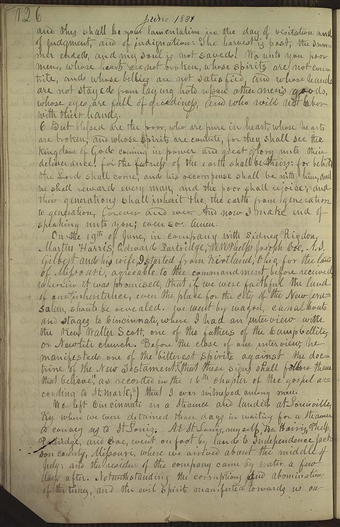 126
June 1831
and this shall be your lamentation in the day of visitation and
of judgment, and of indignation: The harvest is past, the sum-
mer ended, and my soul is not saved! Wo unto you poor
men, whose hearts are not broken, whose spirits are not con-
trite, and whose bellies are not satisfied, and whose hands
are not stayed from laying hold upon other men's goods,
whose eyes are full of greediness, and who will not labor
with their hands.
6 But blessed are the poor, who are pure in heart, whose hearts
are broken, and whose spirits are contrite, for they shall see the
kingdom of God coming in power and great glory unto their
deliverance: for the fatness of the earth shall be theirs: for behold
the Lord shall come, and his recompense shall be with him, and
he shall reward every man, and the poor shall rejoice; and
their generations shall inherit the earth from generation
to generation, forever and ever. And now I make an end of
speaking unto you; even so: Amen.
On the 19th of June, in company with Sidney Rigdon,
Martin Harris, Edward Partridge, W. W. Phelps, Joseph Coe, A. S.
Gilbert and his wife, I started from Kirtland, Ohio, for the land
of Missouri, agreeable to the commandment before received,
wherein it was promised, that if we were faithful the land
of our inheritance, even the place for the city of the New Jeru-
salem, should be revealed. we went by wagon, canal boats
and stages to Cincinnati, where I had an interview with
the Rev. Walter Scott, one of the fathers of the Campbellites,
or Newlite church. Before the close of our interview, he
manifested one of the bitterest spirits against the doc-
trine of the New Testament, "that these signs shall follow them
that believe," as recorded in the 16th chapter of the gospel ac-
cording to St. Mark, I was introduced among men.
We left Cincinnati in a steamer and landed at Louisville,
Ky. where we were detained three days in waiting for a steamer
to convey us to St. Louis. At St. Louis, myself, Harris, Phelps
Partridge, and Coe, went on foot by land to Independence Jack-
son county, Missouri, where we arrived about the middle of
July; and the residue of the company came by water a few
days after. Notwithstanding the corruptions and abominations
of the times, and the evil spirit manifested towards us on